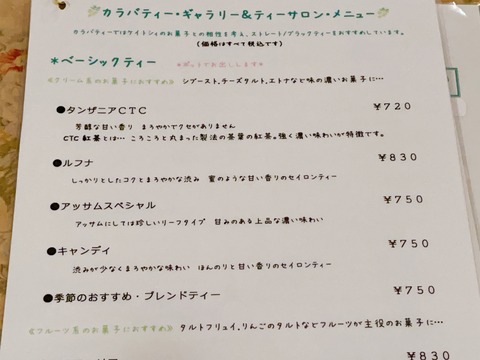 カラバティー・ギャラリー&ティーサロン・メニュー
カラバティーではケイトシィのお菓子との相性を考え、ストレート/ブラックティーをおすすめしています。
(価格はすべて税込です)
*ベーシックティー *ポットでお出しします*
《クリーム系のお菓子におすすめ》 シブースト、チーズタルト、エトナなど味の濃いお菓子に…
●タンザニアCTC ¥720
芳醇な甘い香り まろやかでクセがありません
CTC紅茶とは… ころころと丸まった製法の茶葉の紅茶。強く濃い味わいが特徴です。
●ルフナ ¥830
しっかりとしたコクとまろやかな渋み 蜜のような甘い香りのセイロンティー
●アッサムスペシャル ¥750
アッサムにしては珍しいリーフタイプ 甘みのある上品な濃い味わい
●キャンディ ¥750
渋みが少なくまろやかな味わい ほんのりと甘い香りのセイロンティー
●季節のおすすめ・ブレンドティー ¥750
《フルーツ系のお菓子におすすめ》 タルトフリュイ、りんごのタルトなどフルーツが主役のお菓子に…
¥830